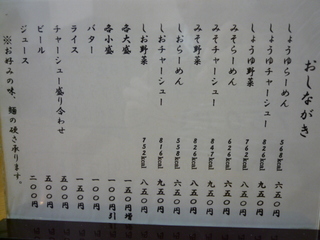 おしながき
しょうゆらーめん 568kcal 六五〇円
しょうゆチャーシュー 826kcal 九五〇円
しょうゆ野菜 762kcal 八五〇円
みそらーめん 626kcal 六五〇円
みそチャーシュー 847kcal 九五〇円
みそ野菜 826kcal 八五〇円
しおらーめん 558kcal 六五〇円
しおチャーシュー 816kcal 九五〇円
しお野菜 752kcal 八五〇円
各大盛 一五〇円増
各小盛 一〇〇円引
バター 一〇〇円
ライス 一五〇円
チャーシュー盛り合わせ 五〇〇円
ビール 五〇〇円
ジュース 二〇〇円
※お好みの味、麺の硬さ承ります。